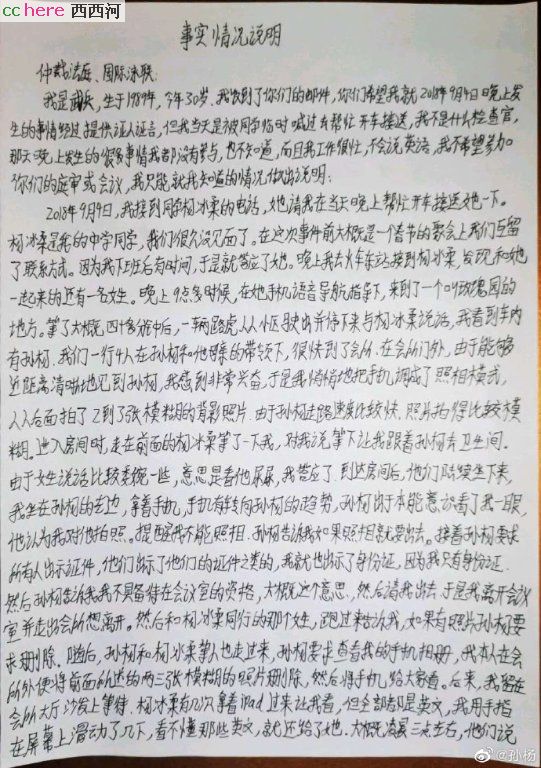 cchere 西西河
事实情况说明
仲裁法庭、国际泳联:
我是武兵,生于1989年,今年30岁。我收到了你们的邮件,你们希望我就2018年9月4日晚上发
生的事情经过提供证人证言,但我当天是被同学临时喊过去帮忙开车接送,我不是什么检查官,
那天晚上发生的很多事情我都没有参与,也不知道,而且我工作很忙,不会说英语,我不希望参加
你们的庭审或会议,我只能就我知道的情况做出说明:
2018年9月4日,我接到同学杨冰柔的电话,她请我在当天晚上帮忙开车接送她一下。
杨冰柔是我的中学同学,我们很久没见面了。在这次事件前大概是一个春节的聚会上我们互留
了联系方式。因为我下班后有时间,于是就答应了她。晚上我去火车东站接到杨冰柔,发现和她
一起来的还有一名女生。晚上9点多时候,在她手机语音导航指导下,来到了一个叫玫瑰园的
地方。等了大概四十多分钟后,一辆路虎,从小区驶出并停下来与杨冰柔说话,我看到车内
有孙杨。我们一行4人在孙杨和他母亲的带领下,很快到了会所。在会所门外,由于能够
近距离清晰地见到孙杨,我感到非常兴奋,于是我悄悄地把手机调成了照相模式,
从后面拍了2到了张模糊的背影照片。由于孙杨走路速度比较快,照片拍得比较模
糊。进入房间时,走在前面的杨冰柔等了一下我,对我说等下让我跟着孙杨去卫生间。
由于女生说话比较委婉一些,意思是看他尿尿,我答应了。到达房间后,他们陆续坐下来,
我坐在孙杨的左边,拿着手机,手机有转向孙杨的趋势,孙杨出于本能意识看了我一眼,
他认为我对他拍照。提醒我不能照相。孙杨告诉我如果照相就要出去。接着孙杨要求
所有人出示证件,他们出示了他们的证件之类的,我就也出示了身份证,因为我只有身份证。
然后孙杨告诉我我不具备待在会议室的资格,大概这个意思,然后请我出去。于是我离开会议
室并走出会所想离开,然后和杨冰柔同行的那个女生,跑过来告诉我,如果有照片孙杨要
求删除。随后,孙杨和杨冰柔等人也走过来,孙杨要求查看我的手机相册,我本人在会
所外便将前面所述的两三张模糊的照片删除,然后将手机给大家看。后来,我留在
会所大厅沙发上等待。杨冰柔有几次拿着ipad过来让我看,但全部都是英文,我用手指
在屏幕上滑动了几下,看不懂那些英文,就还给了她。大概凌晨三点左右,他们说
@孙杨